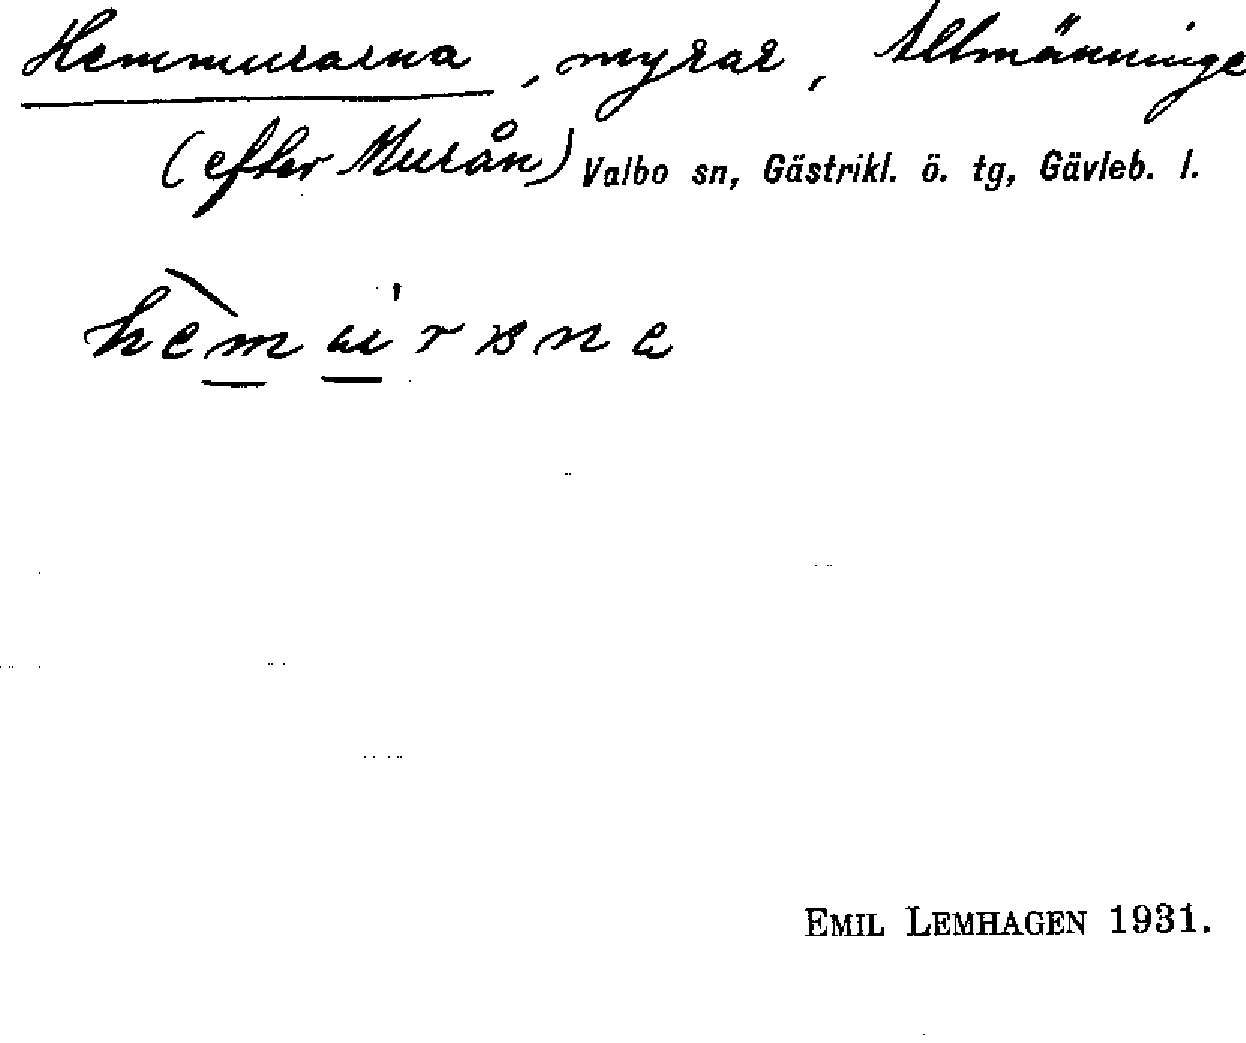 Hemmurarna, myrar, Allmänninge
(efter Murån) Valbo sn, Gästrikl. ö. tg, Gävleb. l.
EMIL LEMHAGEN 1931.